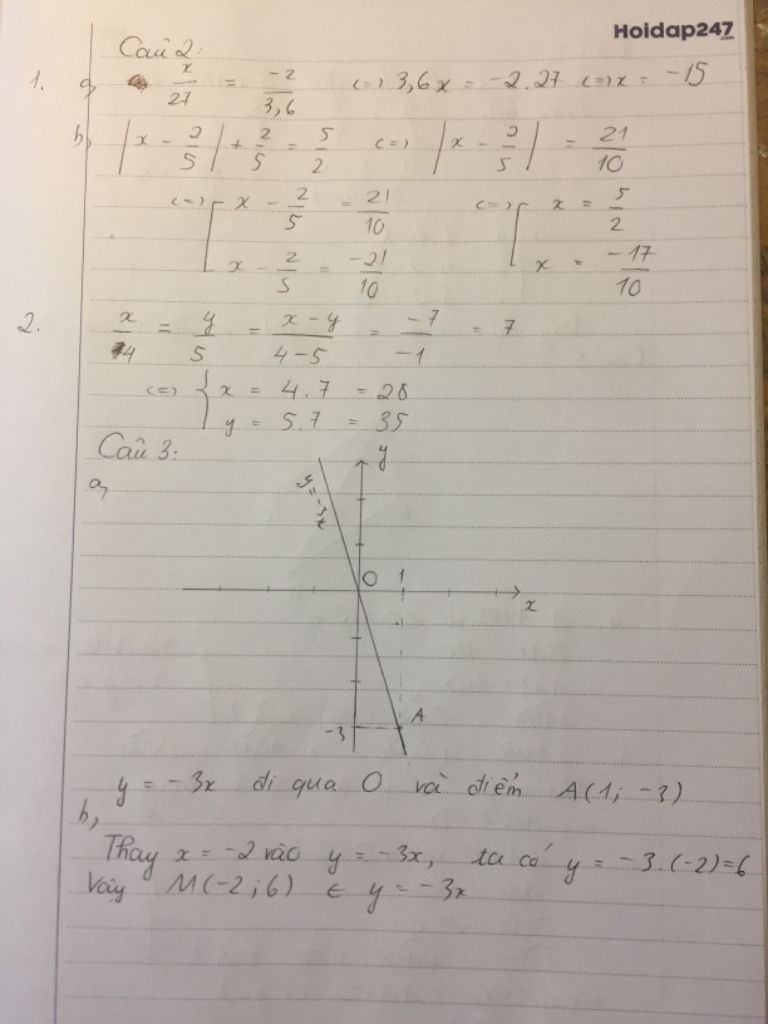 Hoidap247.com
Câu 2:
1. a, x/27 = -2/3,6 <=> 3,6x = -2.27 <=> x = -15
b, |x - 2/5| + 2/5 = 5/2 <=> |x - 2/5| = 21/10
<=> [ x - 2/5 = 21/10 <=> [ x = 5/2
x - 2/5 = -21/10 x = -17/10
2. x/4 = y/5 = x-y/4-5 = -7/-1 = 7
<=> { x = 4.7 = 28
y = 5.7 = 35
Câu 3:
a,
y
y = -3x
O 1
x
A
-3
y = -3x đi qua O và điểm A(1; -3)
b,
Thay x = -2 vào y = -3x, ta có y = -3.(-2)=6
Vậy M(-2;6) ∈ y = -3x